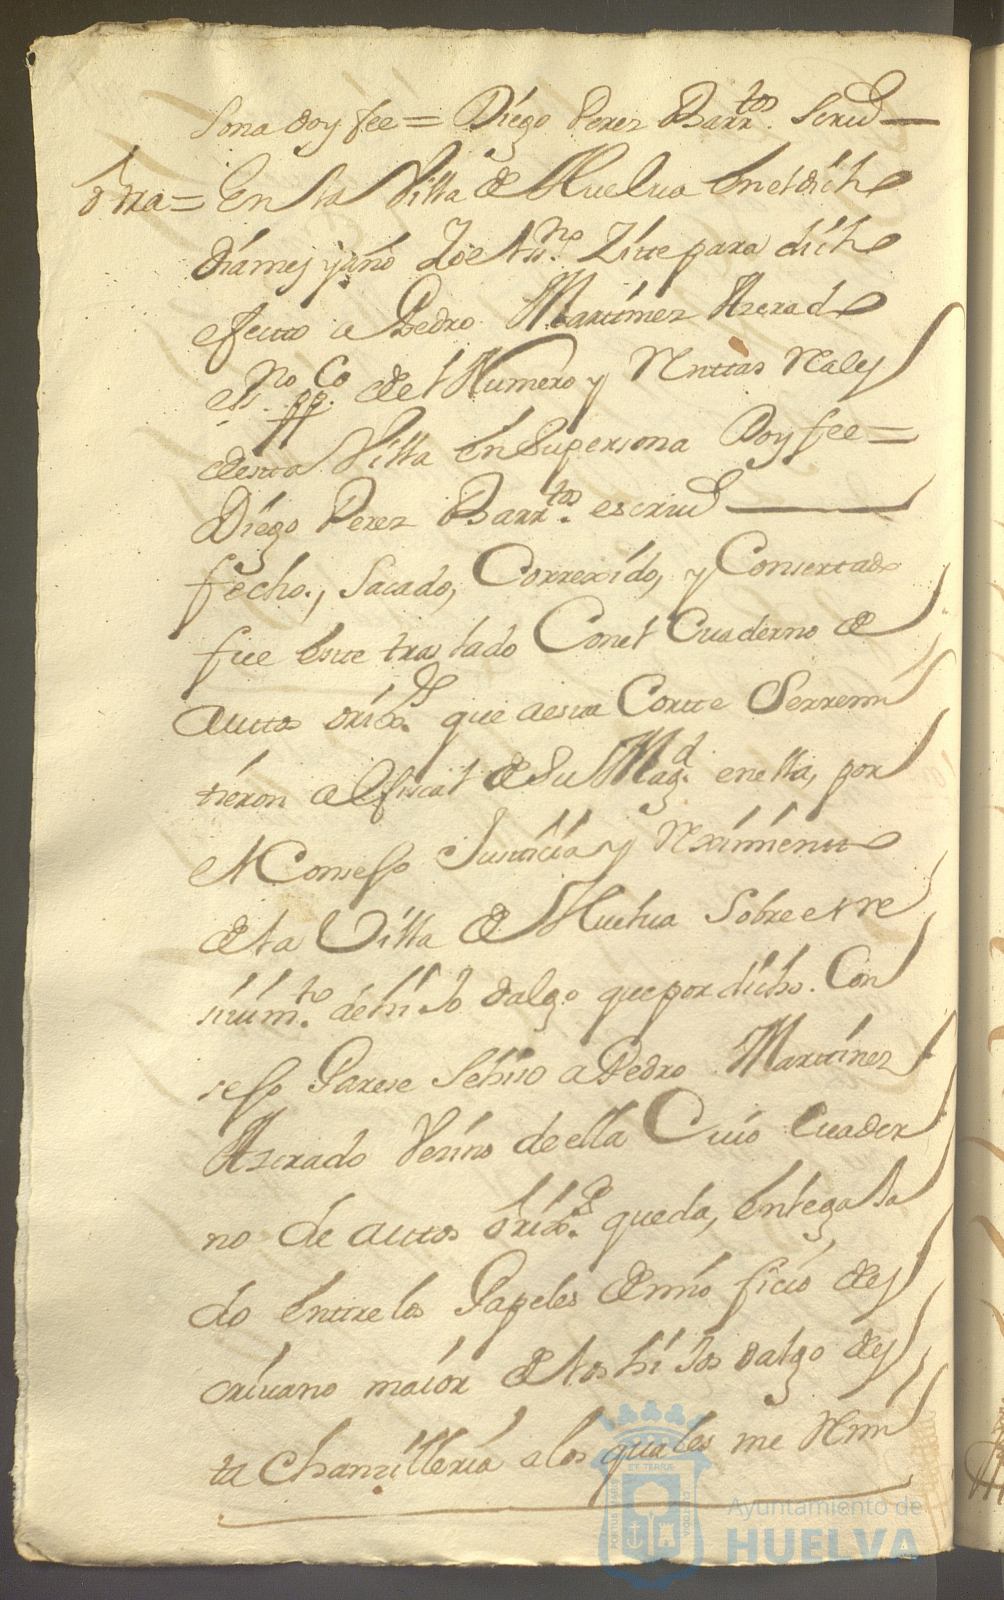 sona doy fee = Diego Perez Barr.tos Scriu.d
otra = En la Villa de Huelua en el dicho
dia mes y año Yo el ss.no Zite para dicho
efecto a Pedro Martinez Azerado
ess.no pp.co del Numero y Renttas Rales
desta Villa en su persona Doy fee =
Diego Perez Barr.tos escriu.d
fecho, sacado, Correxido, y Consertado
fue este traslado Con el Cuaderno de
autos orix.s que a esta Corte Se rremi
tieron al fiscal de Su Mag.d en ella, por
el Consesso Justicia y Reximiento
de la Villa de Huelua sobre el re
siuim.to de hiJo dalgo que por dicho Con
sesso Parese se hiso a Pedro Martinez
Azerado Vezino de ella Cuio Cuader
no de autos orix.s queda, entregaJa
do entre los Papeles de mi oficio de es
criuano maior de los hiJos dalgo de es
ta Chanzilleria a los quales me Remi
Ayuntamiento de
HUELVA